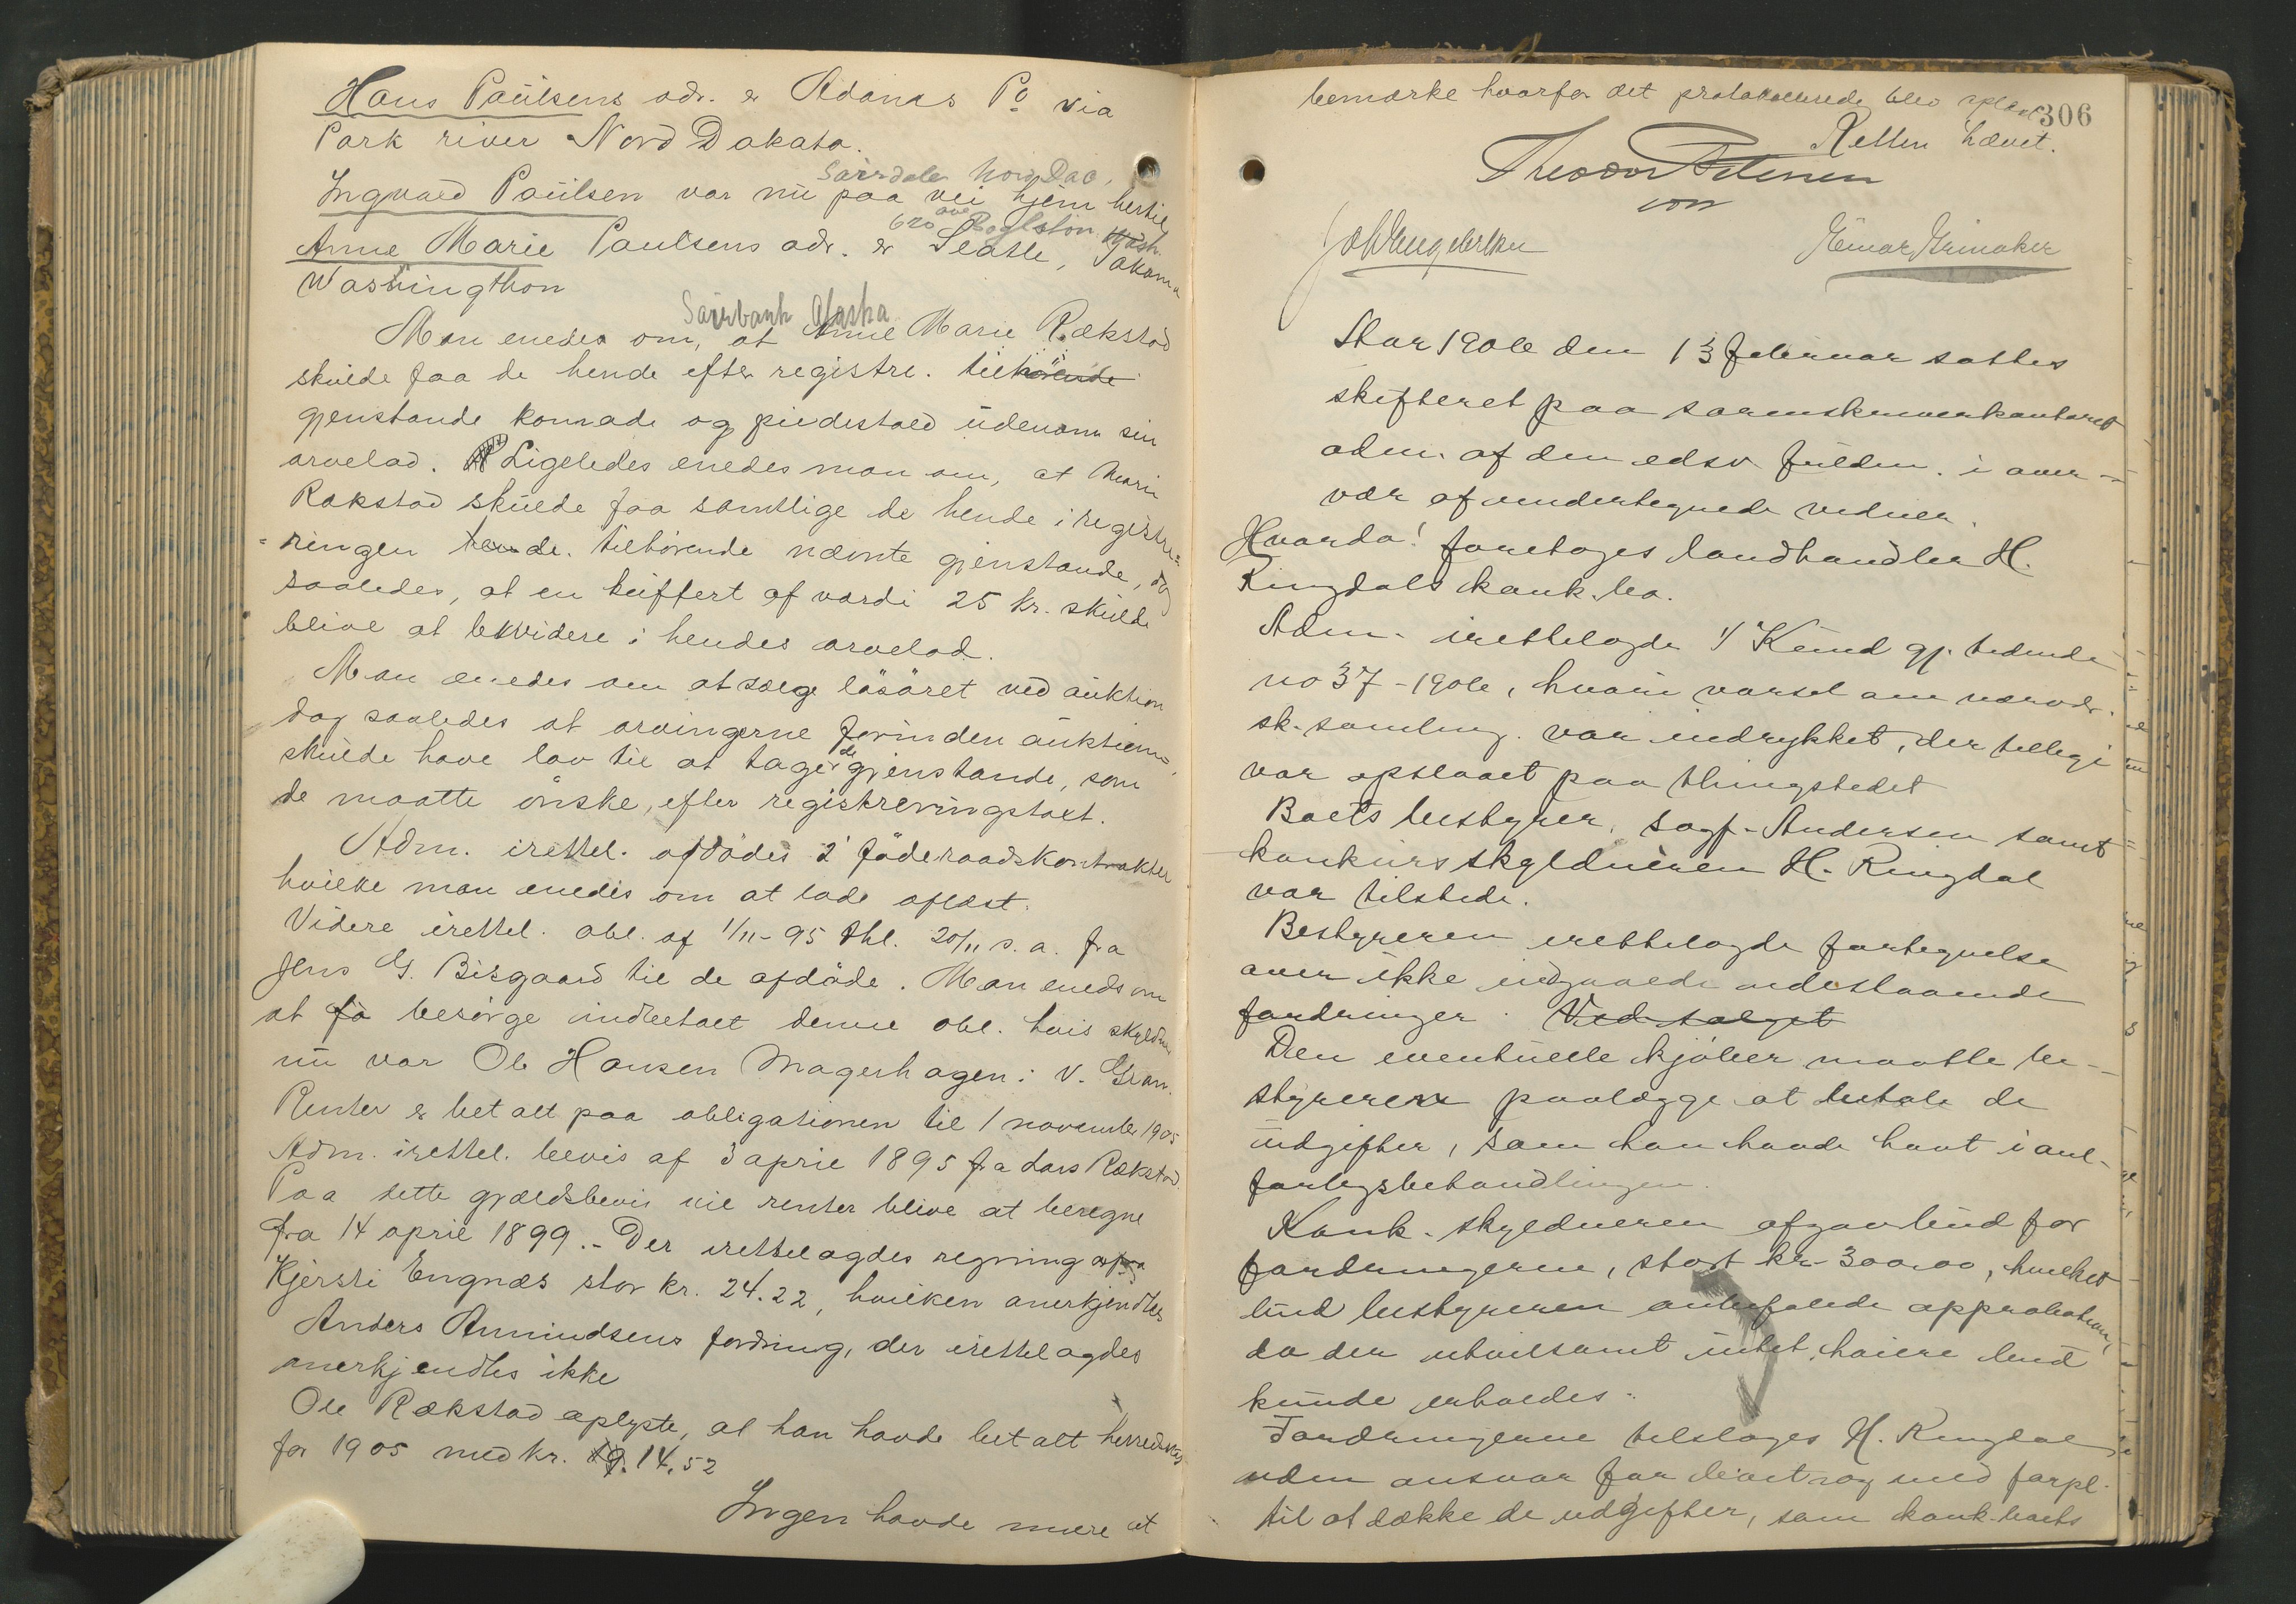 Hans Paulsens adr. er Adams Po via
Park river Nord Dakata.
Nord Dac.
Ingvald Paulsen var nu paa vei hjem hertil
620 ave Wash.
Anne Marie Paulsens adr. er Seatle, Takoma
Washingthon
Alaska
Man enedes om, at Anne Marie Rækstad
skulde faa de hende efter registre. tilhörende
gjenstande komode og piedestald udenom sin
arvelod. Ligeledes enedes man om, at Marie
Rækstad skulde faa samtlige de hende i registre=
=ringen hende. tilhörende nævnte gjenstande, dog
saaledes, at en buffert af værdi 25 kr. skulde
blive at lekvidere i hendes arvelod.
Man enedes om at sælge lösöret ved auktion
dog saaledes at arvingerne forinden auktionen
skulde have lov til at tage de gjenstande, som
de maatte önske, efter registreringstaxt.
Adm. irettel. afdödes 2 föderaadskontrakter
hvilke man enedes om at lade aflæst.
Videre irettel. obl. af 1/11-95 thl. 20/11 s. a. fra
Jens G. Bisgaard til de afdöde. Man enedes om
at få besörge indbetalt denne obl. hvis skyldner
nu var Ole Hansen Magerhagen i V. Gran.
Renter er betalt paa obligationen til 1 november 1905
Adm. irettel. bevis af 3 april 1895 fra Lars Rækstad
Paa dette gjældsbevis vil renter blive at beregne
fra 14 april 1899.- Der irettelagdes regning fra
Kjersti Engnæs stor kr. 24.22, hvilken anerkjendtes
Anders Amundsens fordring, der irettelagdes
anerkjendtes ikke
Ole Rækstad oplyste, at han havde betalt herredsskat
for 1905 med kr. 14.52
Ingen havde mere at
bemærke hvorfor det protokollerede blev oplæst
306
Retten hævet.
Theodor Petersen
Einar Grinaker
Aar 1906 den 13 februar sattes
skifteret paa sorenskriverkontoret
adm. af den edsv. fuldm. i over-
vær af undertegnede vidner.
Hvorda! foretoges landhandler H.
Ringdals konk.bo.
Adm. irettelagde 1/ Kund gj. tidende
no 37-1906, hvori varsel om nærvær.
sk.samling. var indrykket, der tillige
var opslaaet paa thingstedet
Boets bestyrer, sagf. Andersen samt
konkursskyldneren H. Ringdal
var tilstede.
Bestyreren irettelagde fortegnelse
over ikke indgaaede udestaaende
fordringer. Ved salget
Den eventuelle kjöber maatte be-
styreren paalægge at betale de
udgifter, som han havde havt i anl.
forligsbehandlingen.
Konk.skyldneren afgav bud for
fordringerne, stort kr. 300.00, hvilket
bud bestyreren anbefalede approbation,
da der utvilsomt intet höiere bud
kunde erholdes.
Fordringerne tilsloges H. Ringdal
uden ansvar for boet og med forpl.
til at dække de udgifter, som konk.boets